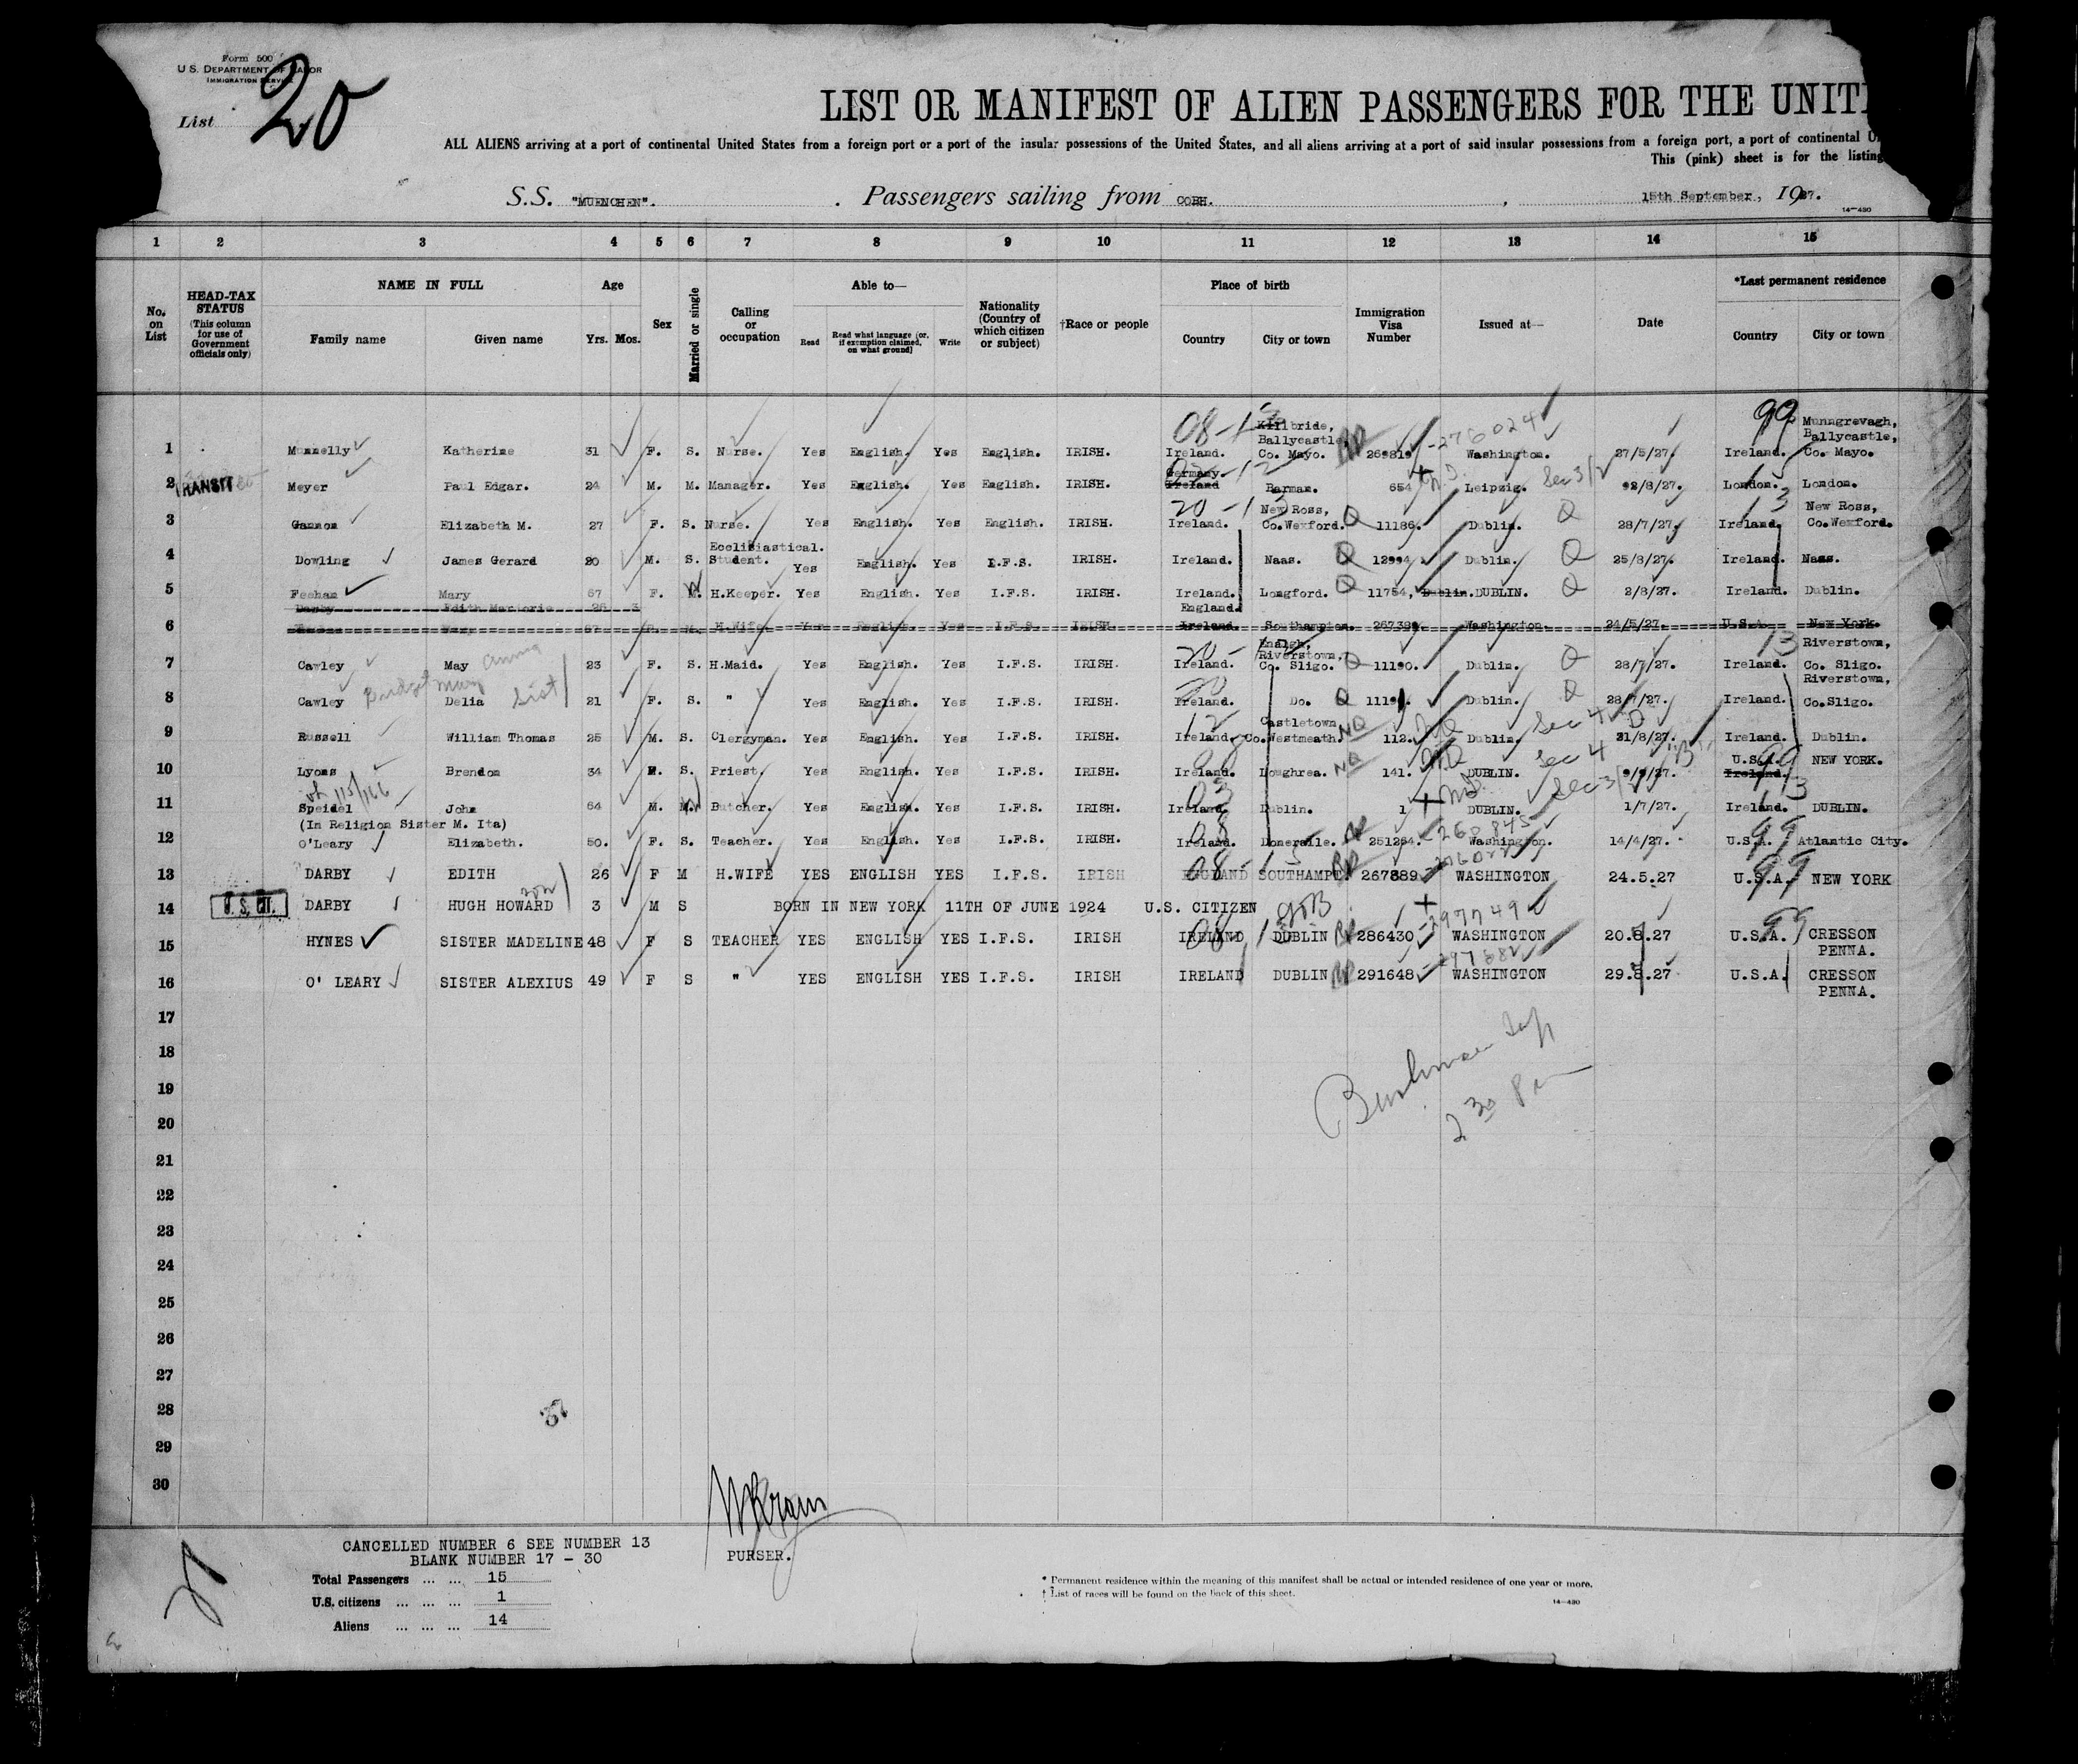 Form 500
U.S. DEPARTMENT OF LABOR
IMMIGRATION SERVICE
List 20
LIST OR MANIFEST OF ALIEN PASSENGERS FOR THE UNIT
ALL ALIENS arriving at a port of continental United States from a foreign port or a port of the insular possessions of the United States, and all aliens arriving at a port of said insular possessions from a foreign port, a port of continental
This (pink) sheet is for the listing
S.S. "MUENCHEN". Passengers sailing from COBH. , 15th September, 1927.
14-430
1 2 3 4 5 6 7 8 9 10 11 12 13 14 15
No. on List
HEAD-TAX STATUS (This column for use of Government officials only)
NAME IN FULL
Family name Given name
Age
Yrs. Mos.
Sex
Married or single
Calling or occupation
Able to—
Read Read what language (or, if exemption claimed, on what ground) Write
Nationality (Country of which citizen or subject)
†Race or people
Place of birth
Country City or town
Immigration Visa Number
Issued at—
Date
*Last permanent residence
Country City or town
08-1 99 Munngrevagh,
Kilbride, Ballycastle, -276024 Ballycastle,
1 Munnelly Katherine 31 F. S. Nurse. Yes English. Yes English. IRISH. Ireland. Co. Mayo. 269819 Washington. 27/5/27. Ireland. Co. Mayo.
Germany
2 TRANSIT Meyer Paul Edgar. 24 M. M. Manager. Yes English. Yes English. IRISH. Ireland Barman. 654 Leipzig. Sec 3/2 92/8/27. London. London.
20-13 New Ross, 13 New Ross,
3 Gannon Elizabeth M. 27 F. S. Nurse. Yes English. Yes English. IRISH. Ireland. Co.Wexford. Q 11186. Dublin. Q 28/7/27. Ireland. Co.Wexford.
Ecclisiastical.
4 Dowling James Gerard 20 M. S. Student. Yes English. Yes I.F.S. IRISH. Ireland. Naas. Q 12994 Dublin. Q 25/8/27. Ireland. Naas.
5 Feehan Mary 67 F. W H.Keeper. Yes English. Yes I.F.S. IRISH. Ireland. Longford. Q 11754, Dublin. DUBLIN. Q 2/8/27. Ireland. Dublin.
Darby Edith Marjorie 26 3 England.
6 67 F. M. H.Wife Yes English. Yes I.F.S. IRISH. Ireland. Southampton. 267389 Washington. 24/5/27. U.S.A. New York.
Anna 20- Riverstown, 13 Riverstown,
7 Cawley May 23 F. S. H.Maid. Yes English. Yes I.F.S. IRISH. Ireland. Co. Sligo. Q 11190. Dublin. Q 28/7/27. Ireland. Co. Sligo.
Bridget Mary sist 20 Riverstown,
8 Cawley Delia 21 F. S. " Yes English. Yes I.F.S. IRISH. Ireland. Do. Q 11191. Dublin. Q 28/7/27. Ireland. Co.Sligo.
12 Castletown NQ Sec 4 D
9 Russell William Thomas 25 M. S. Clergyman. Yes English. Yes I.F.S. IRISH. Ireland. Co.Westmeath. 112. Dublin. 31/8/27. Ireland. Dublin.
NQ Sec 4 U.S.A. 99
10 Lyons Brendon 34 M. S. Priest. Yes English. Yes I.F.S. IRISH. Ireland. Loughrea. 141. DUBLIN. 9/9/27. Ireland. NEW YORK.
115/166 03 Sec 3/ 13
11 Speidel John 64 M. Butcher. Yes English. Yes I.F.S. IRISH. Ireland. Dublin. 1 DUBLIN. 1/7/27. Ireland. DUBLIN.
(In Religion Sister M. Ita) 08 -268845 99
12 O'Leary Elizabeth. 50. F. S. Teacher. Yes English. Yes I.F.S. IRISH. Ireland. Doneraile. 251254. Washington. 14/4/27. U.S.A. Atlantic City.
13 DARBY EDITH 26 F M H.WIFE YES ENGLISH YES I.F.S. IRISH ENGLAND SOUTHAMPT. 267889 WASHINGTON 24.5.27 U.S.A. NEW YORK
son
14 U.S. CIT. DARBY HUGH HOWARD 3 M S BORN IN NEW YORK 11TH OF JUNE 1924 U.S. CITIZEN
-297749 99
15 HYNES SISTER MADELINE 48 F S TEACHER YES ENGLISH YES I.F.S. IRISH IRELAND DUBLIN 286430 WASHINGTON 20.8.27 U.S.A. CRESSON PENNA.
-297682
16 O' LEARY SISTER ALEXIUS 49 F S " YES ENGLISH YES I.F.S. IRISH IRELAND DUBLIN 291648 WASHINGTON 29.8.27 U.S.A. CRESSON PENNA.
17
18
19
2 30 Pm
20
21
22
23
24
25
26
27
28
29
30
CANCELLED NUMBER 6 SEE NUMBER 13
BLANK NUMBER 17 - 30
PURSER.
Total Passengers ... ... 15
U.S. citizens ... ... ... 1
Aliens ... ... ... 14
* Permanent residence within the meaning of this manifest shall be actual or intended residence of one year or more.
† List of races will be found on the back of this sheet.
14-430